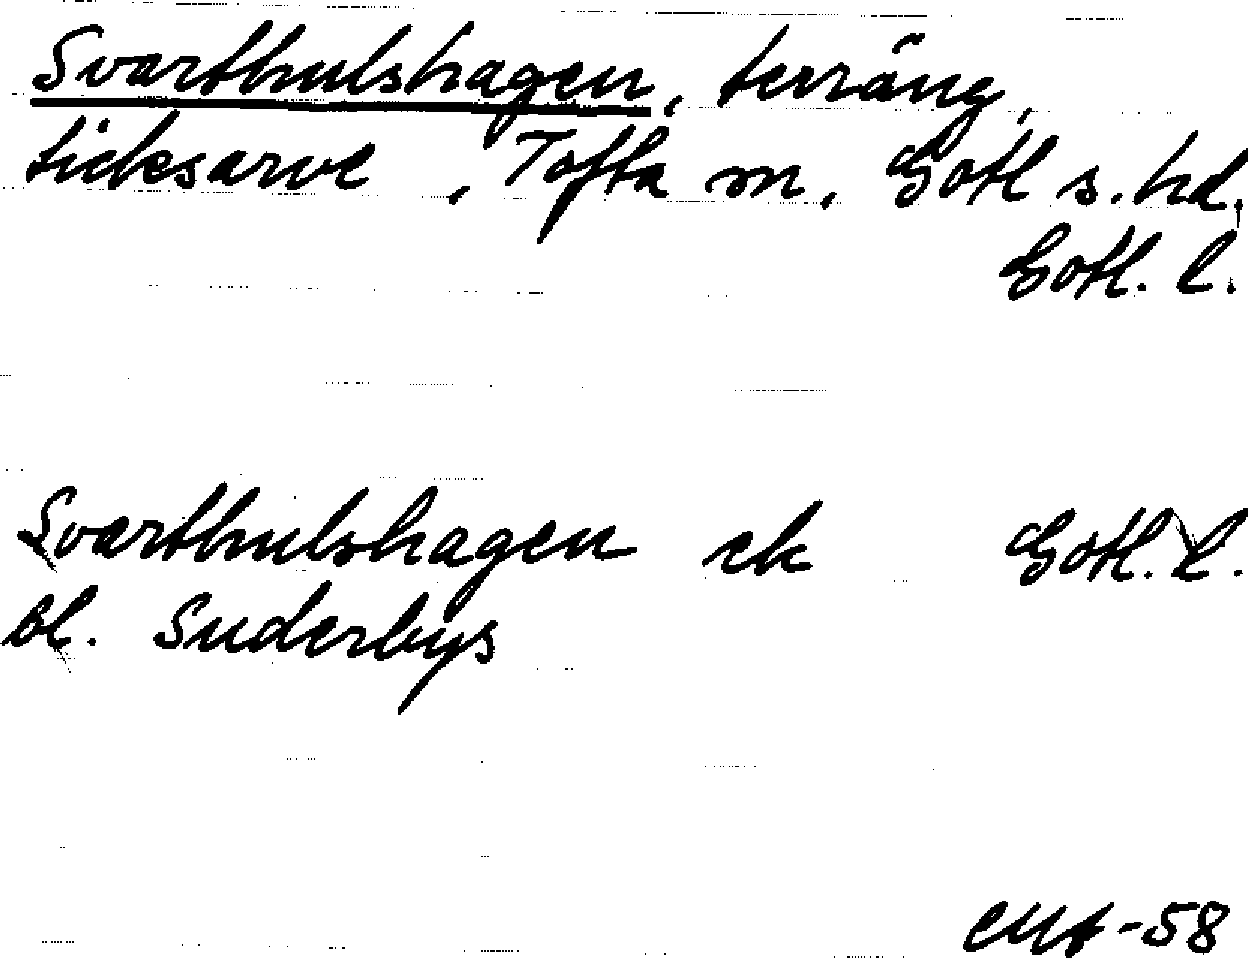 Svarthulshagen, terräng,
ticksarve, Tofta sn, Gotl s. hd.
Gotl. l.
Svarthulshagen ek Gotl. l.
bl. Suderbys
-58